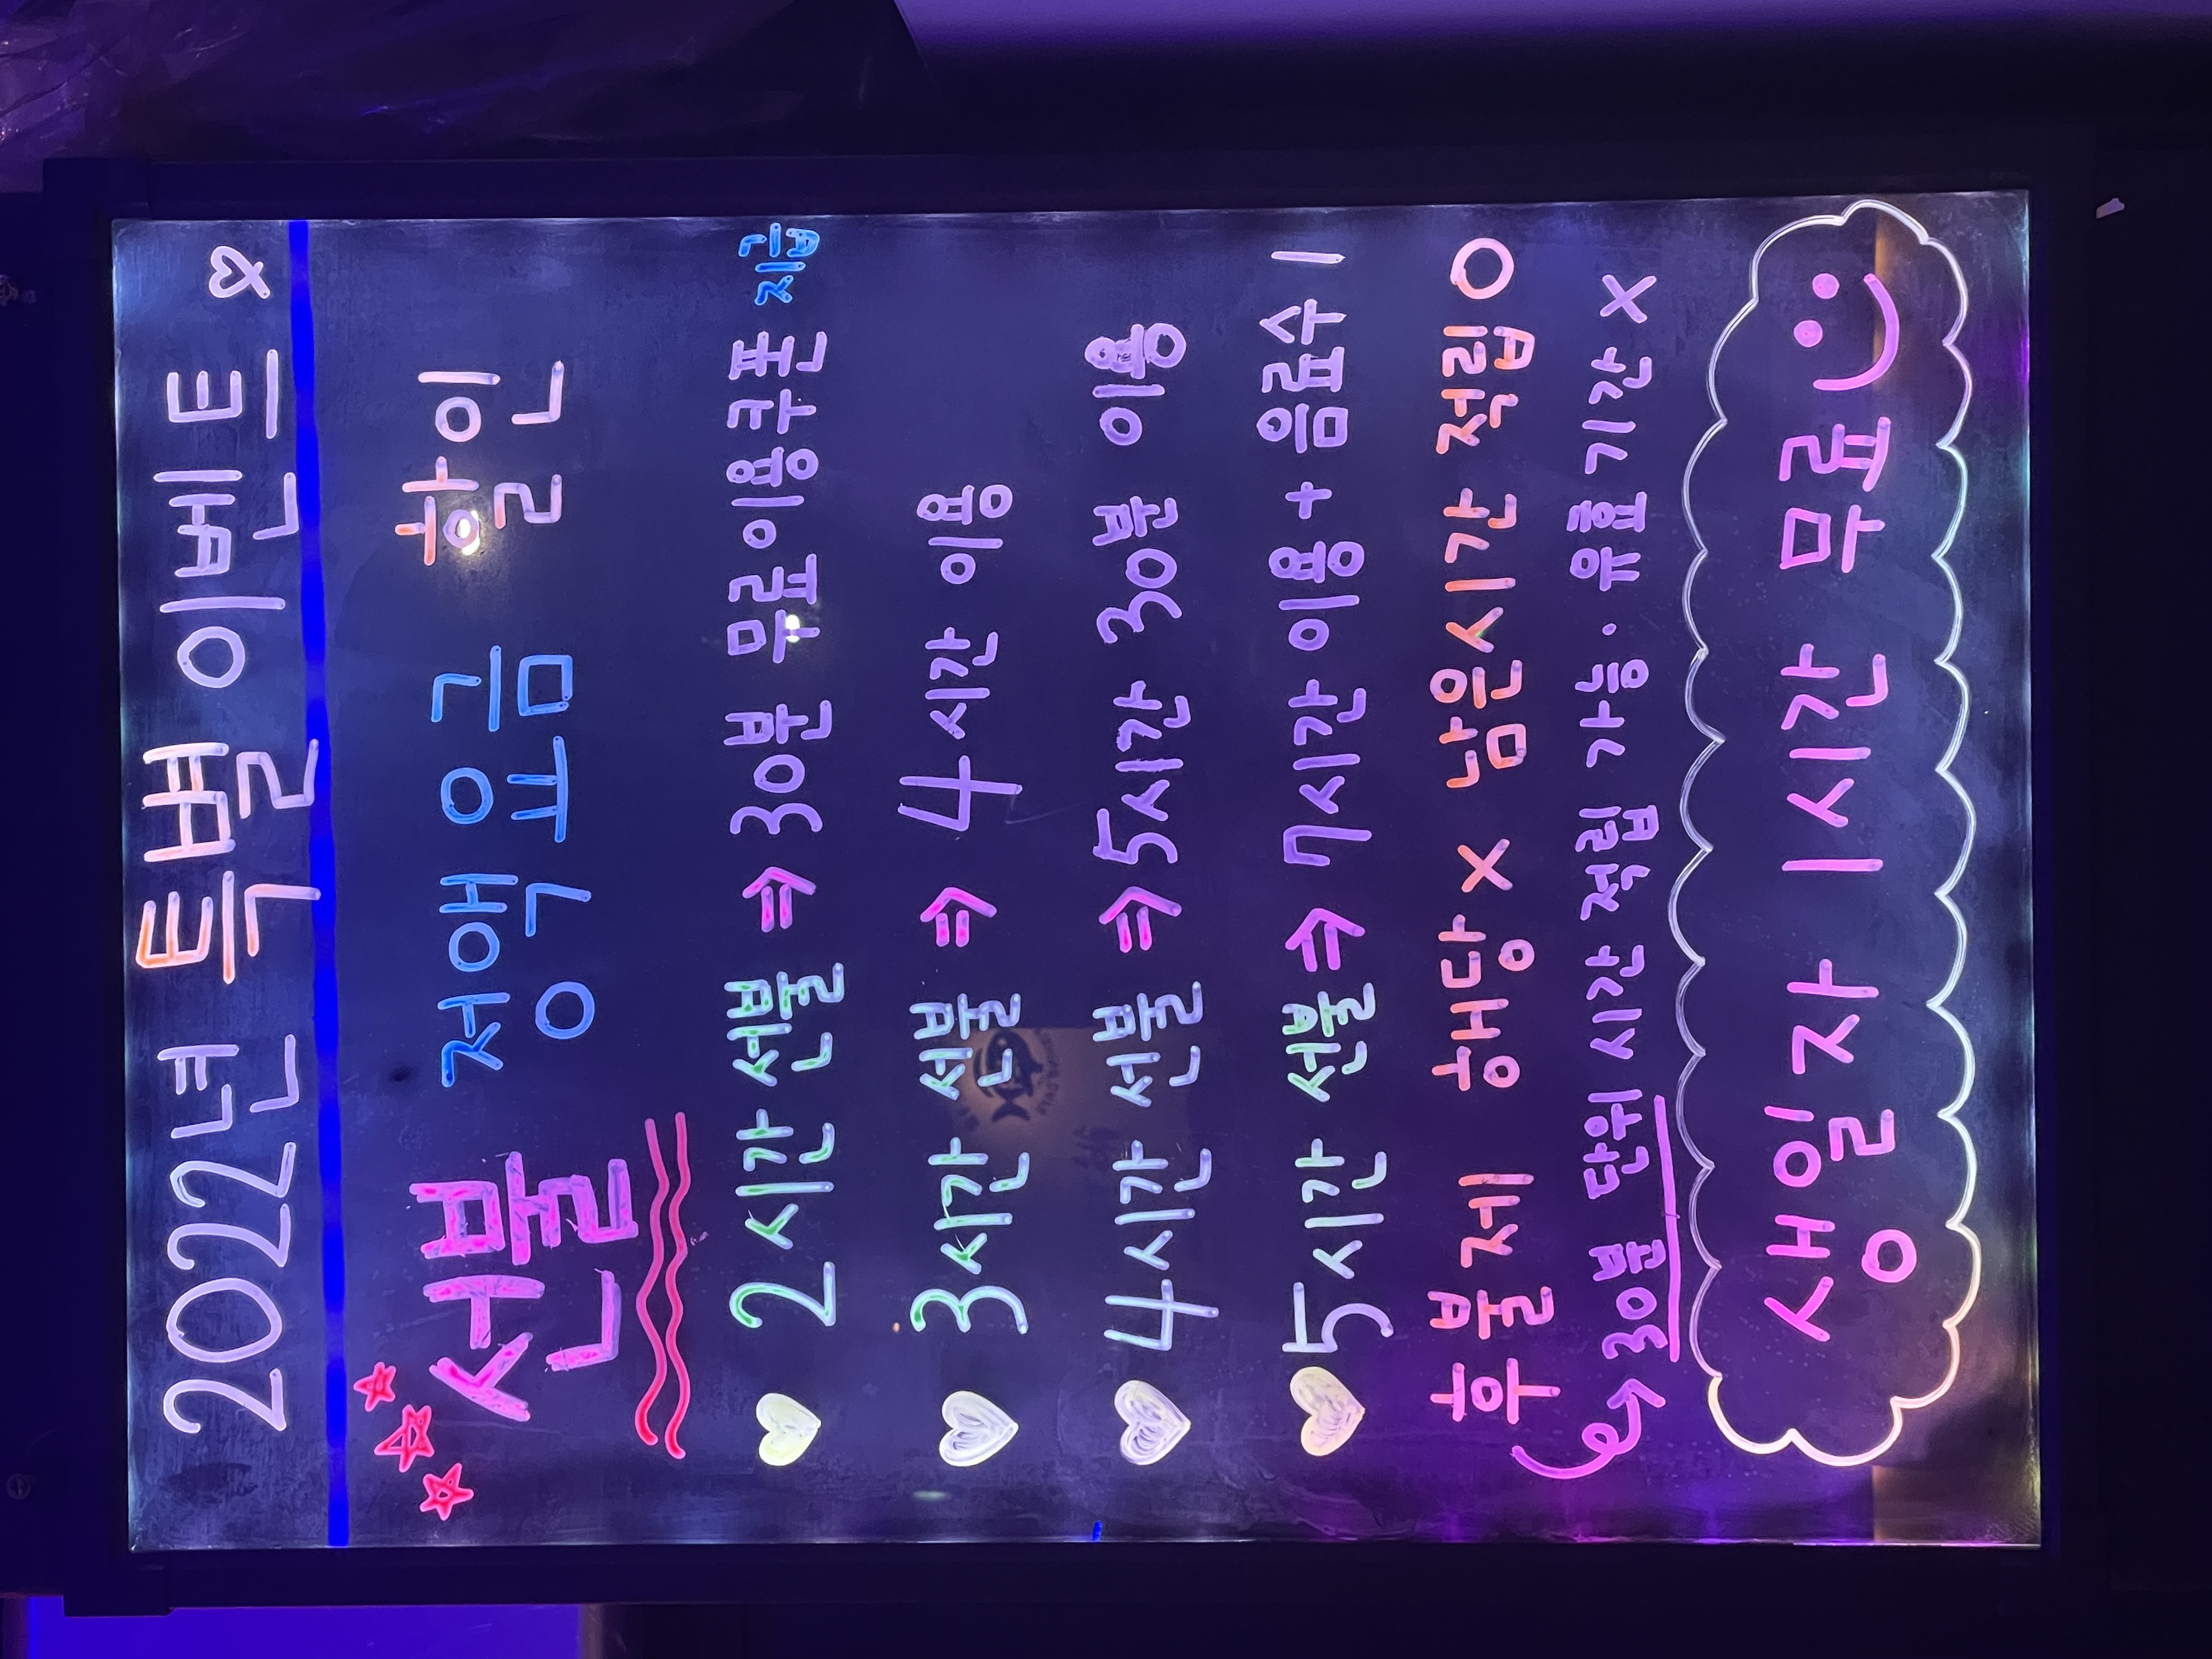 2022년 특별 이벤트 ♡
선불 정액 요금 할인
2시간 선불 ⇒ 30분 무료이용쿠폰 지급
3시간 선불 ⇒ 4시간 이용
4시간 선불 ⇒ 5시간 30분 이용
5시간 선불 ⇒ 7시간 이용 + 음료수 1
후불제 해당 X 남은시간 적립 O
30분 단위 시간 적립 가능. 유효 기간 X
생일자 1시간 무료